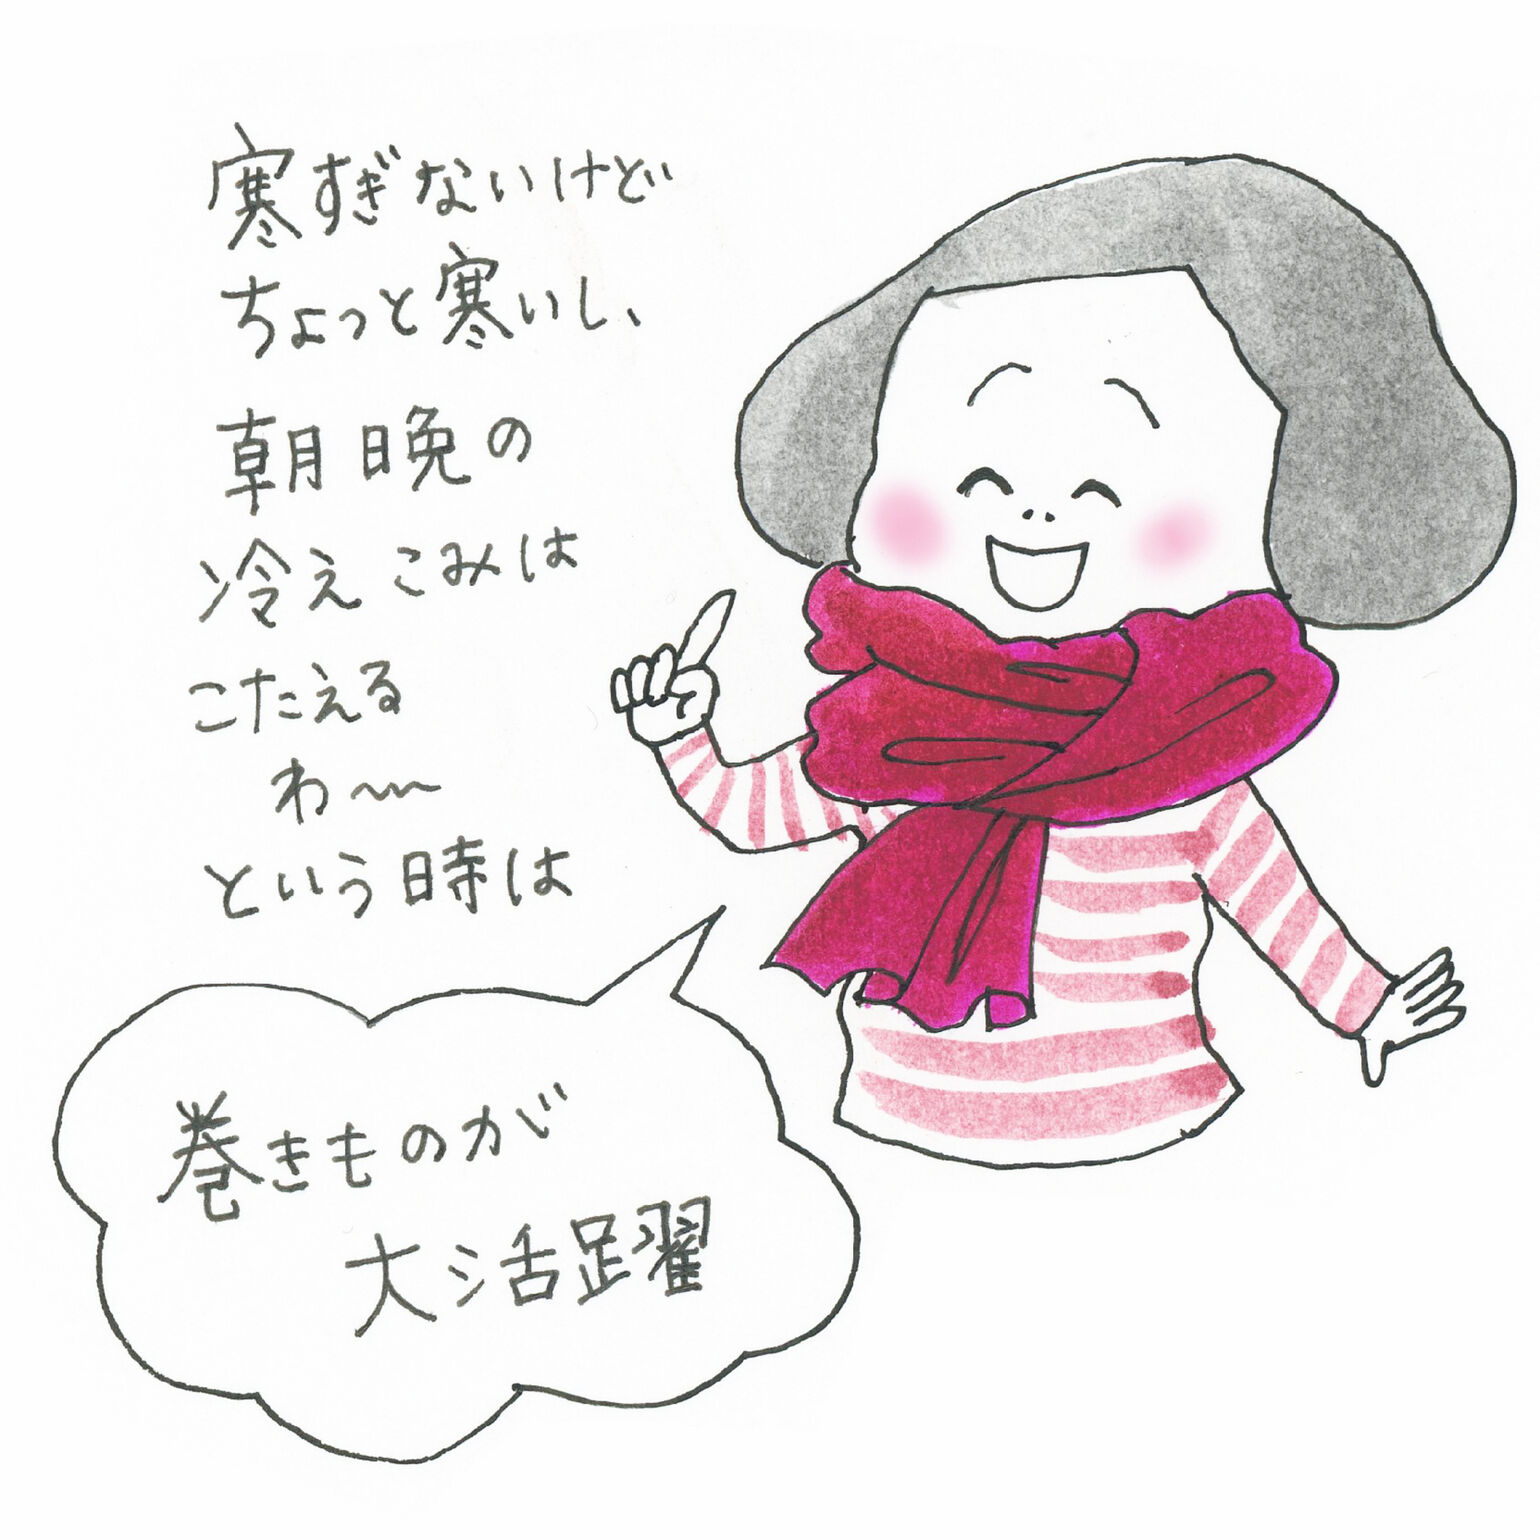 寒すぎないけど
ちょっと寒いし、
朝晩の
冷えこみは
こたえる
わ〜
という時は
巻きものが
大活躍